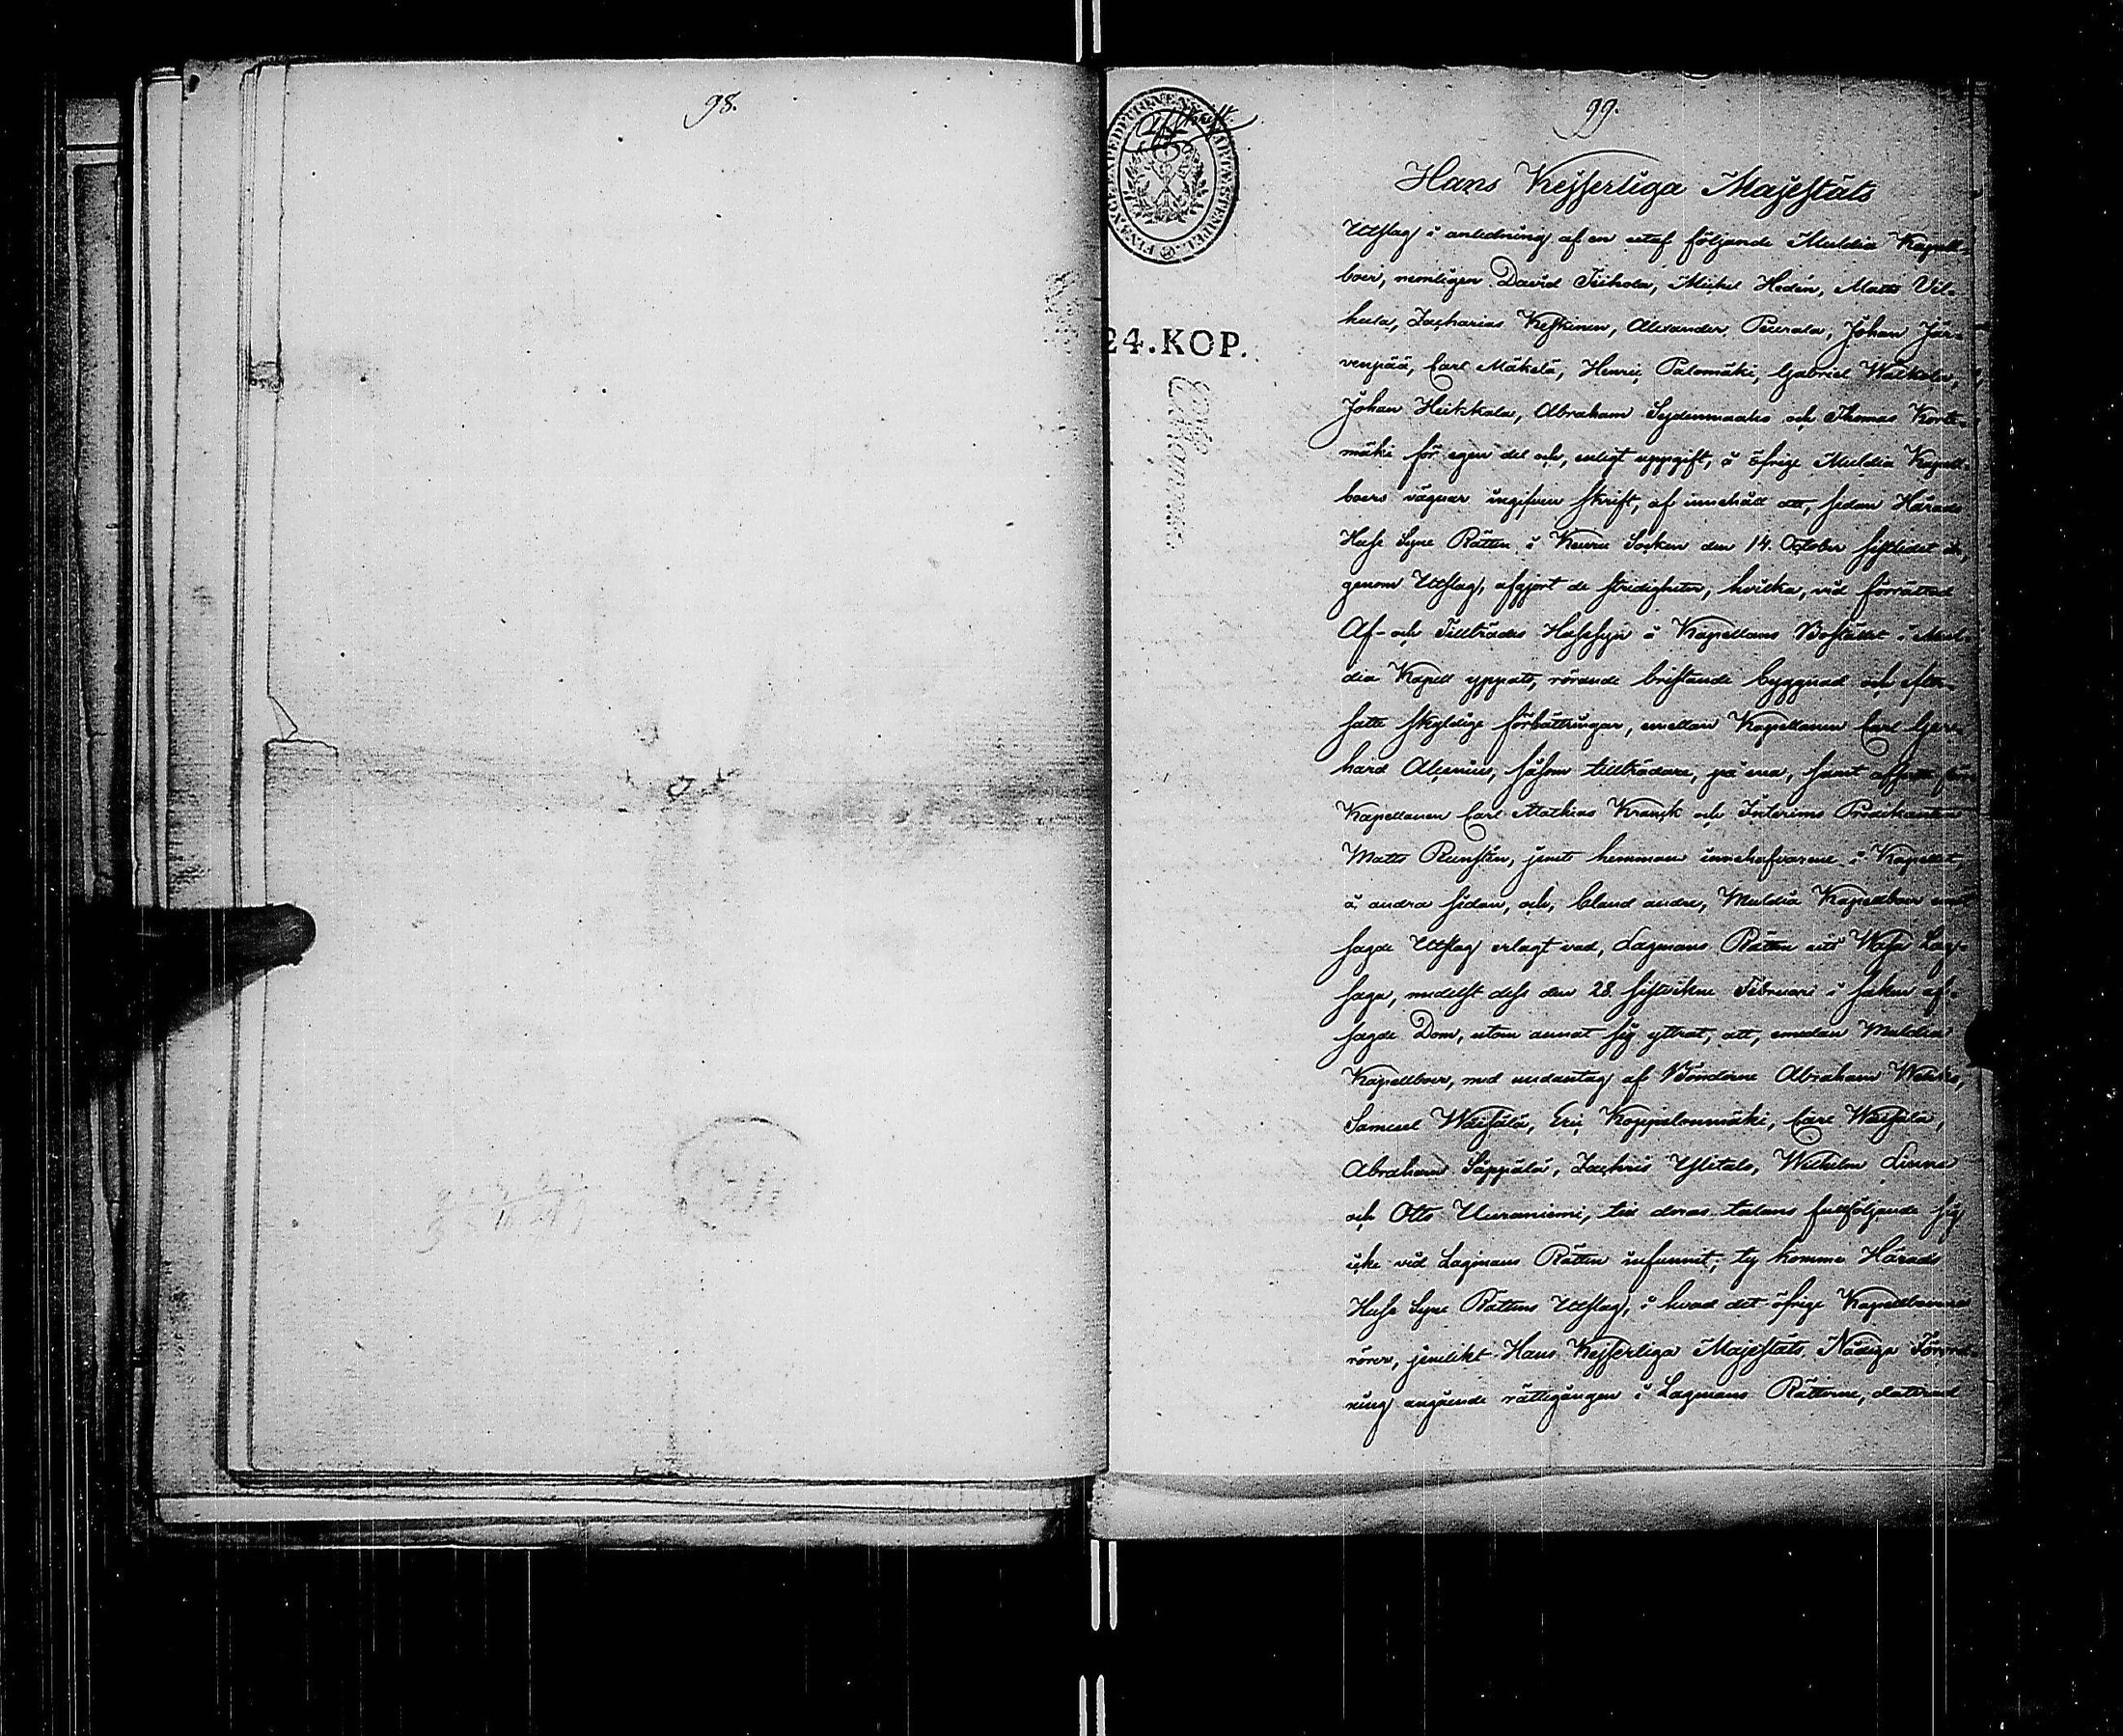 98.
99.
24. KOP.
Hans Kejserliga Majestäts
Utslag i anledning af en utaf följande Muldia Kapell-
boer, nemligen David Tiihola, Michel Hedén, Matts Vil-
kula, Zacharias Keskinen, Alexander Peurala, Johan Jär-
venpää, Carl Mäkelä, Henric Palomäki, Gabriel Walkola,
Johan Heikkala, Abraham Sydenmaaho och Thomas Korte-
mäki för egen del och, enligt uppgift, å öfrige Muldia Kapell-
boers vägnar ingifven skrift, af innehåll att, sedan Härads
Huse Syne Rätten i Keuru Socken den 14. October sistlidet år,
genom Utslag, afgjort de stridigheter, hvilka, vid förrättad
Af- och Tillträdes Husesyn å Kapellans Bostället i Mul-
dia Kapell yppats, rörande bristande byggnad och efter-
satte skyldige förbättringar, emellan Kapellanen Carl Ger-
hard Alcenius, såsom tillträdare, på ena, samt
Kapellanen Carl Mathias Kranck och Interims Predikanten
Matts Runstén, jemte hemmans innehafvarene i Kapellet,
å andra sidan, och, bland andre, Muldia Kapellboer emot
sagde Utslag erlagt vad, Lagmans Rätten uti Wasa Lag-
saga, medelst dess den 28. sistvikne Februari i saken af-
sagde Dom, utom annat sig yttrat, att, emedan Muldia
Kapellboer, med undantag af Bönderne Abraham
Samuel Waisälä, Eric Koppelonmäki, Carl Waisälä,
Abraham Säppälä, Zachris Ylitalo, Wilhelm Linna
och Otto Uuraniemi, till deras talans fullföljande sig
icke vid Lagmans Rätten infunnit; ty komme Härads
Huse Syne Rättens Utslag, i hvad det öfrige Kapellboerne
rörer, jemlikt Hans Kejserliga Majestäts Nådiga Förord-
ning angående rättegången i Lagmans Rätterne, daterad